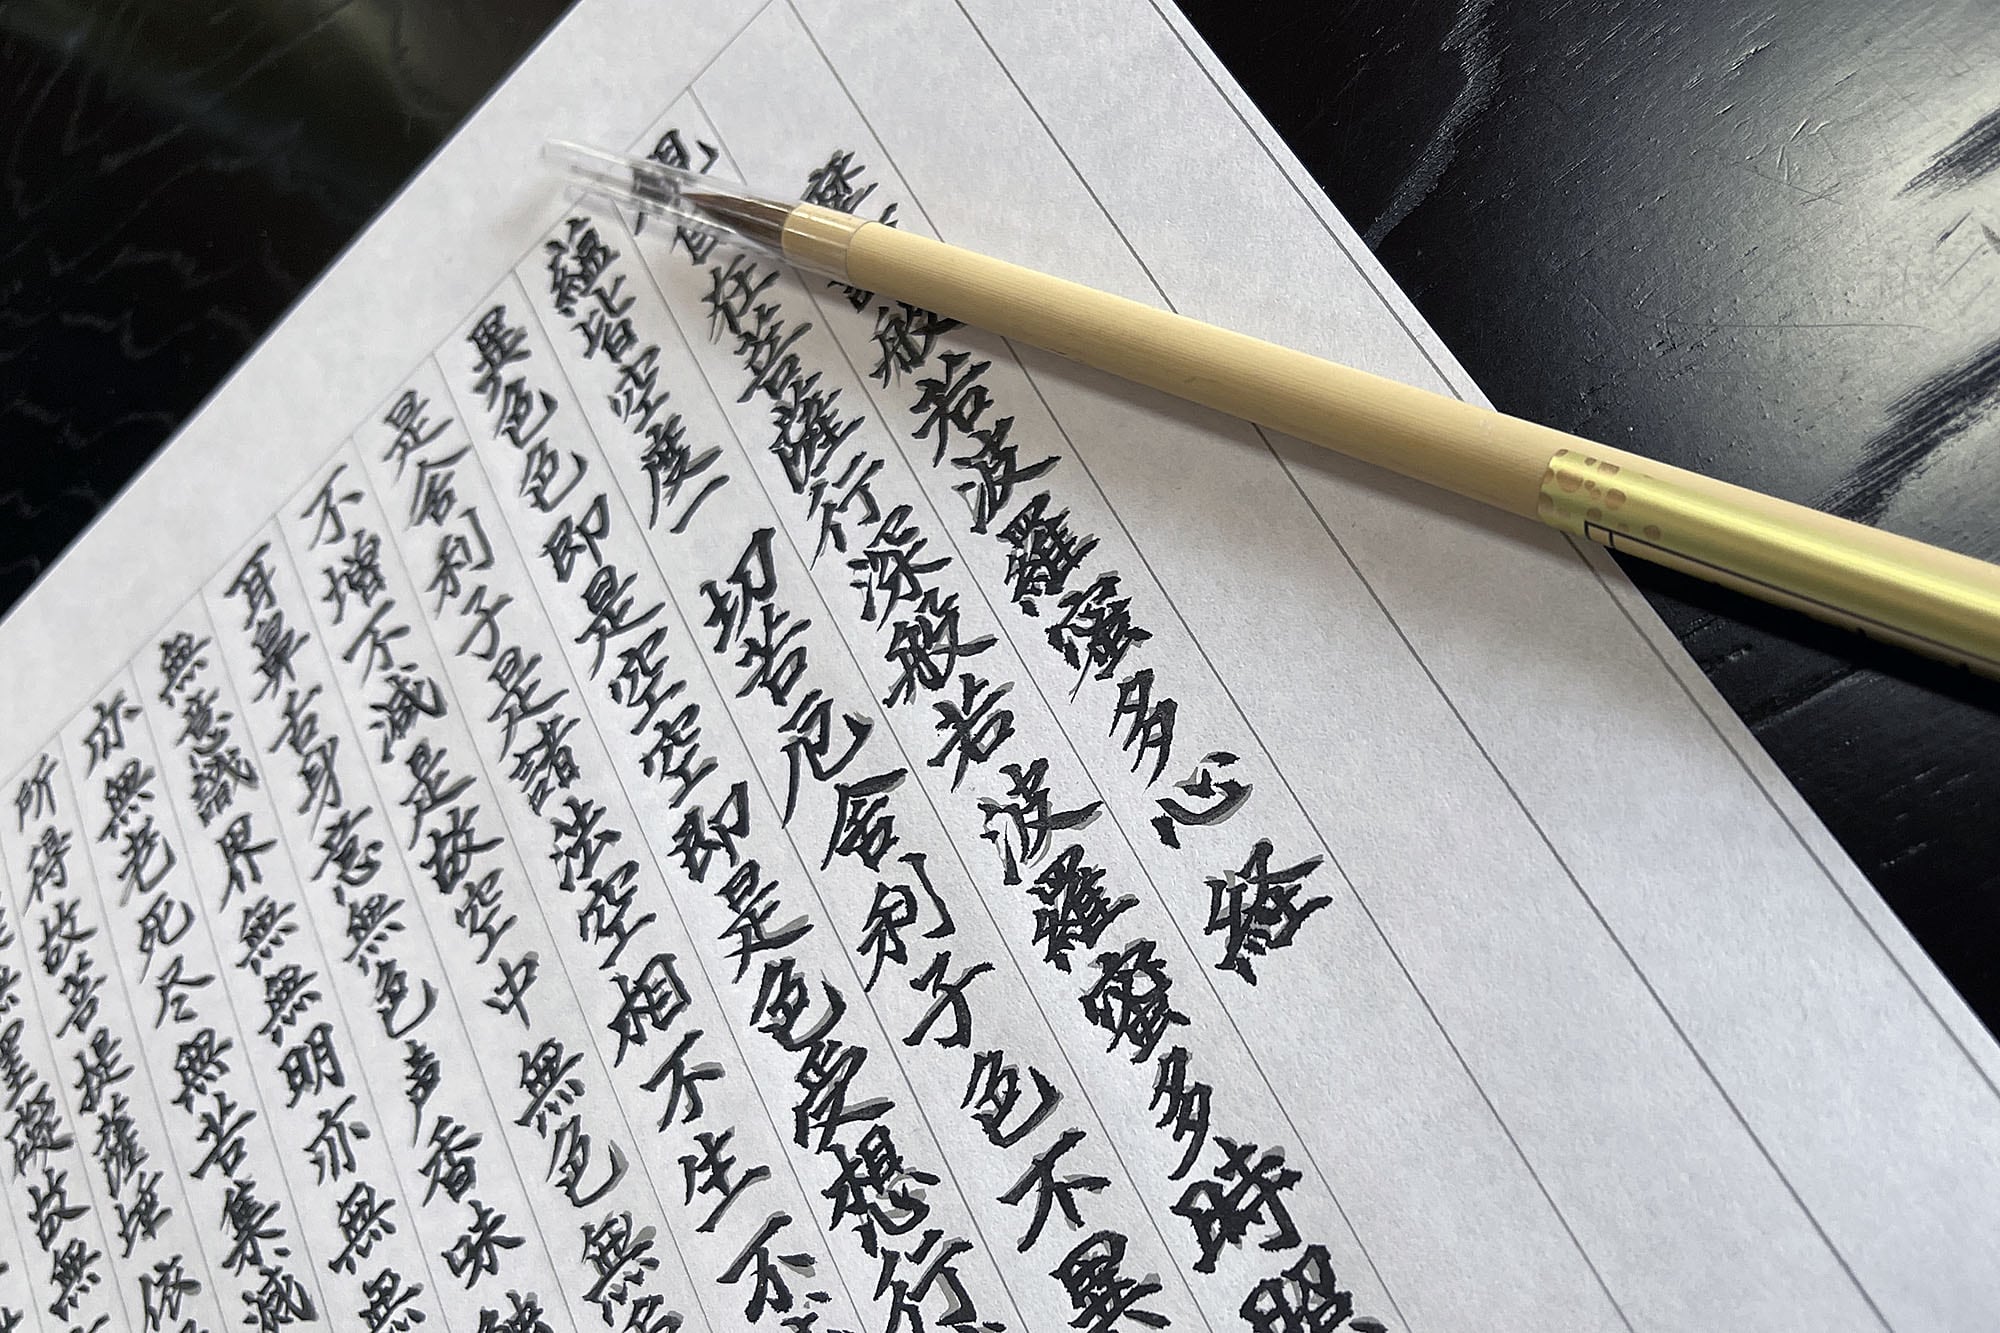 摩般若波羅蜜多心経
観自在菩薩行深般若波羅蜜多時照
蘊皆空度一切苦厄舎利子色不異
異色色即是空空即是色受想行
是舎利子是諸法空相不生不
不増不減是故空中無色無
耳鼻舌身意無色声香味触
無意識界無無明亦無無
亦無老死尽無苦集滅
所得故菩提薩埵依
無罣礙故無